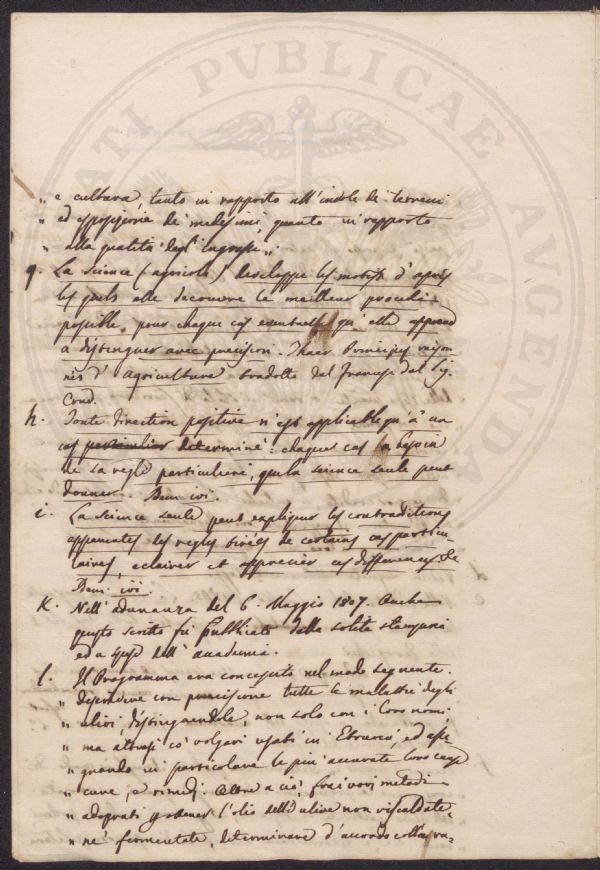 PVBLICAE
AVGENDA
„ e cultura, tanto in rapporto all'indole de' terreni
„ ed esposizione de' medesimi, quanto in rapporto
„ alla qualità degl'Ingrassi „.
g. La science (agricole) developpe les motifs d'après
les quels elle decouvre le meilleur procedé
possible, pour chaque cas eventuel, qu'elle apprend
a distinguer avec precision. Thaer Principes raison
nés d'agriculture tradotto del Francese dal Sig.
Crud.
h. Toute direction positive n'est applicable qu'à un
cas particulier determiné: chaques cas a besoin
de sa regle particuliere, que la science seule peut
donner. Dem ivi.
i. La science seule peut expliquer les contraditions
apparentes les regles tirées de certains cas particu-
laires, eclairer et apprecier ces differences. Le
Dem: ivi.
k. Nell'adunanza del 6. Maggio 1807. Anche
questo scritto fù pubblicato dalla solita stamperia
ed a spese dell'accademia.
l. Il Programma era concepito nel modo seguente.
„ descrivere con precisione tutte le malattie degli
„ ulivi, distinguendole, non solo con i loro nomi
„ ma altresì co' volgari usati in Etruria, ed asse
„ gnando in particolare le più accurate loro cause
„ cure, e rimedj. Oltre a ciò, frai varj metodi
„ adoprati per ottener l'olio dell'ulive non riscaldate,
„ nè fermentate, determinare d'accordo coll'